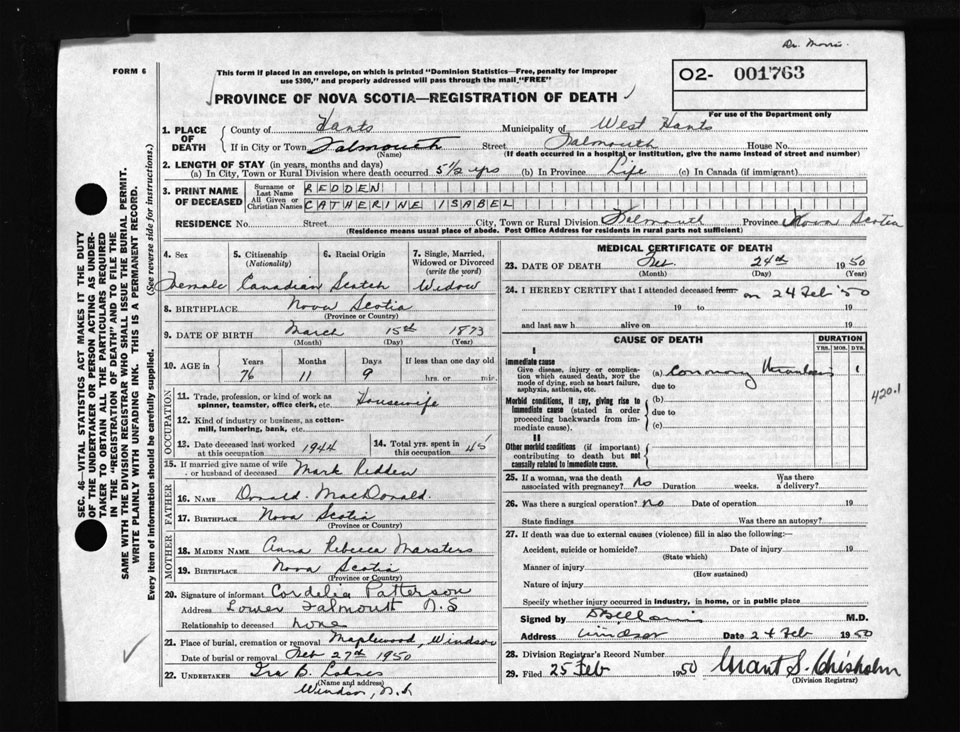 Dr. Morris.
FORM 6
This form if placed in an envelope, on which is printed "Dominion Statistics—Free, penalty for improper
use $300," and properly addressed will pass through the mail "FREE"
O2- 001763
PROVINCE OF NOVA SCOTIA—REGISTRATION OF DEATH
For use of the Department only
1. PLACE OF DEATH
County of Hants Municipality of West Hants
If in City or Town Falmouth Street Falmouth House No.
(Name) (If death occurred in a hospital or institution, give the name instead of street and number)
2. LENGTH OF STAY (in years, months and days)
(a) In City, Town or Rural Division where death occurred 5½ yrs (b) In Province Life (c) In Canada (if immigrant)
3. PRINT NAME OF DECEASED
Surname or Last Name REDDEN
All Given or Christian Names CATHERINE ISABEL
RESIDENCE No. Street City, Town or Rural Division Falmouth Province Nova Scotia
(Residence means usual place of abode. Post Office Address for residents in rural parts not sufficient)
4. Sex Female
5. Citizenship (Nationality) Canadian
6. Racial Origin Scotch
7. Single, Married, Widowed or Divorced (write the word) Widow
8. BIRTHPLACE Nova Scotia
(Province or Country)
9. DATE OF BIRTH March 15th 1873
(Month) (Day) (Year)
10. AGE in Years 76 Months 11 Days 9 If less than one day old hrs. or min.
OCCUPATION
11. Trade, profession, or kind of work as spinner, teamster, office clerk, etc. Housewife
12. Kind of industry or business, as cotten-mill, lumbering, bank, etc.
13. Date deceased last worked at this occupation 1944
14. Total yrs. spent in this occupation 45
15. If married give name of wife or husband of deceased Mark Redden
FATHER
16. NAME Donald MacDonald.
17. BIRTHPLACE Nova Scotia
(Province or Country)
MOTHER
18. MAIDEN NAME Anna Rebecca Marsters
19. BIRTHPLACE Nova Scotia
(Province or Country)
20. Signature of informant Cordelia Patterson
Address Lower Falmouth N.S
Relationship to deceased none
21. Place of burial, cremation or removal Maplewood, Windsor
Date of burial or removal Feb 27th 1950
22. UNDERTAKER Ira B. Lohnes
(Name and Address)
Windsor, N.S
MEDICAL CERTIFICATE OF DEATH
23. DATE OF DEATH Feb. 24th 1950
(Month) (Day) (Year)
24. I HEREBY CERTIFY that I attended deceased from on 24 Feb '50
19 to 19
and last saw h alive on 19
CAUSE OF DEATH
DURATION
YRS. MOS. DYS.
I
Immediate cause
Give disease, injury or complication which caused death, NOT the mode of dying, such as heart failure, asphyxia, asthenia, etc.
(a) Coronary Thrombosis 1
due to
420.1
Morbid conditions, if any, giving rise to immediate cause (stated in order proceeding backwards from immediate cause).
(b)
due to
(c)
II
Other morbid conditions (if important) contributing to death but not causally related to immediate cause.
25. If a woman, was the death associated with pregnancy? No Duration weeks. Was there a delivery?
26. Was there a surgical operation? no Date of operation 19
State findings Was there an autopsy?
27. If death was due to external causes (violence) fill in also the following:—
Accident, suicide or homicide? Date of injury 19
(State which)
Manner of injury
(How sustained)
Nature of injury
Specify whether injury occurred in industry, in home, or in public place
Signed by M.D.
Address Windsor Date 24 Feb 1950
28. Division Registrar's Record Number
29. Filed 25 Feb 1950 Grant S. Chisholm
(Division Registrar)
SEC. 46—VITAL STATISTICS ACT MAKES IT THE DUTY
OF THE UNDERTAKER OR PERSON ACTING AS UNDER-
TAKER TO OBTAIN ALL THE PARTICULARS REQUIRED
IN THE "REGISTRATION OF DEATH" AND TO FILE THE
SAME WITH THE DIVISION REGISTRAR WHO SHALL ISSUE THE BURIAL PERMIT.
WRITE PLAINLY WITH UNFADING INK. THIS IS A PERMANENT RECORD.
Every item of information should be carefully supplied. (See reverse side for instructions.)